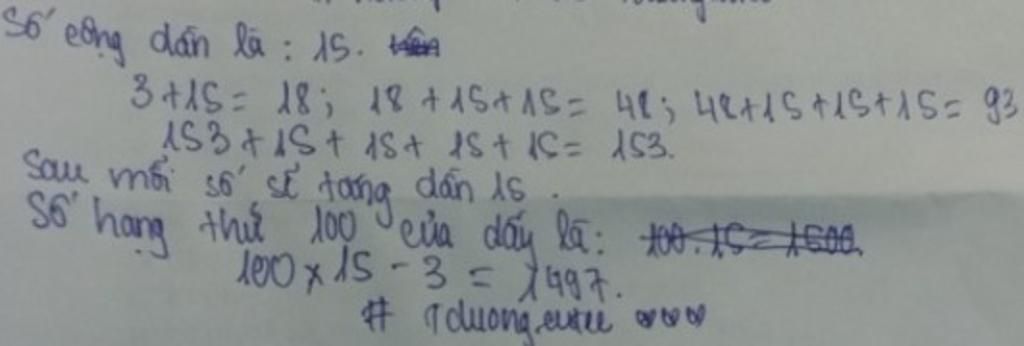 Số cộng dần là : 15.
3+15= 18; 18 +15+15= 48; 48+15+15+15= 93
153 + 15 + 15+ 15 + 15= 153.
Sau mỗi số sẽ tăng dần 15 .
Số hạng thứ 100 của dãy là: 100.15=1500.
100 x 15 - 3 = 1497.